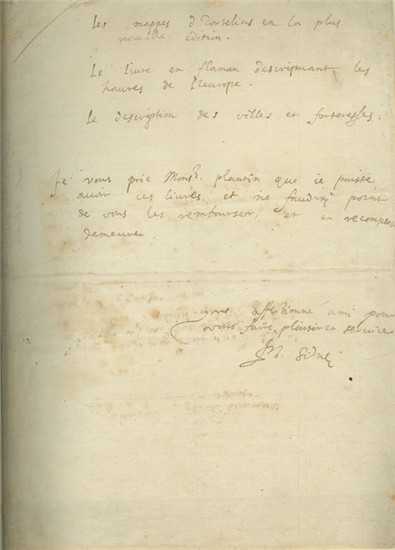 Les mappes d'Ortelius en la plus
nouvelle edition.
Le livre en flaman descripvant les
havres de l'europe.
Le description des villes et forteresses.
Je vous prie Monsr. plantin que je puisse
avoir ces livres et ne faudray point
de vous les rembourser, et en recompense
demeurer
vre affectionné ami pour
vous faire plaisir et service
Ph. Sidnei